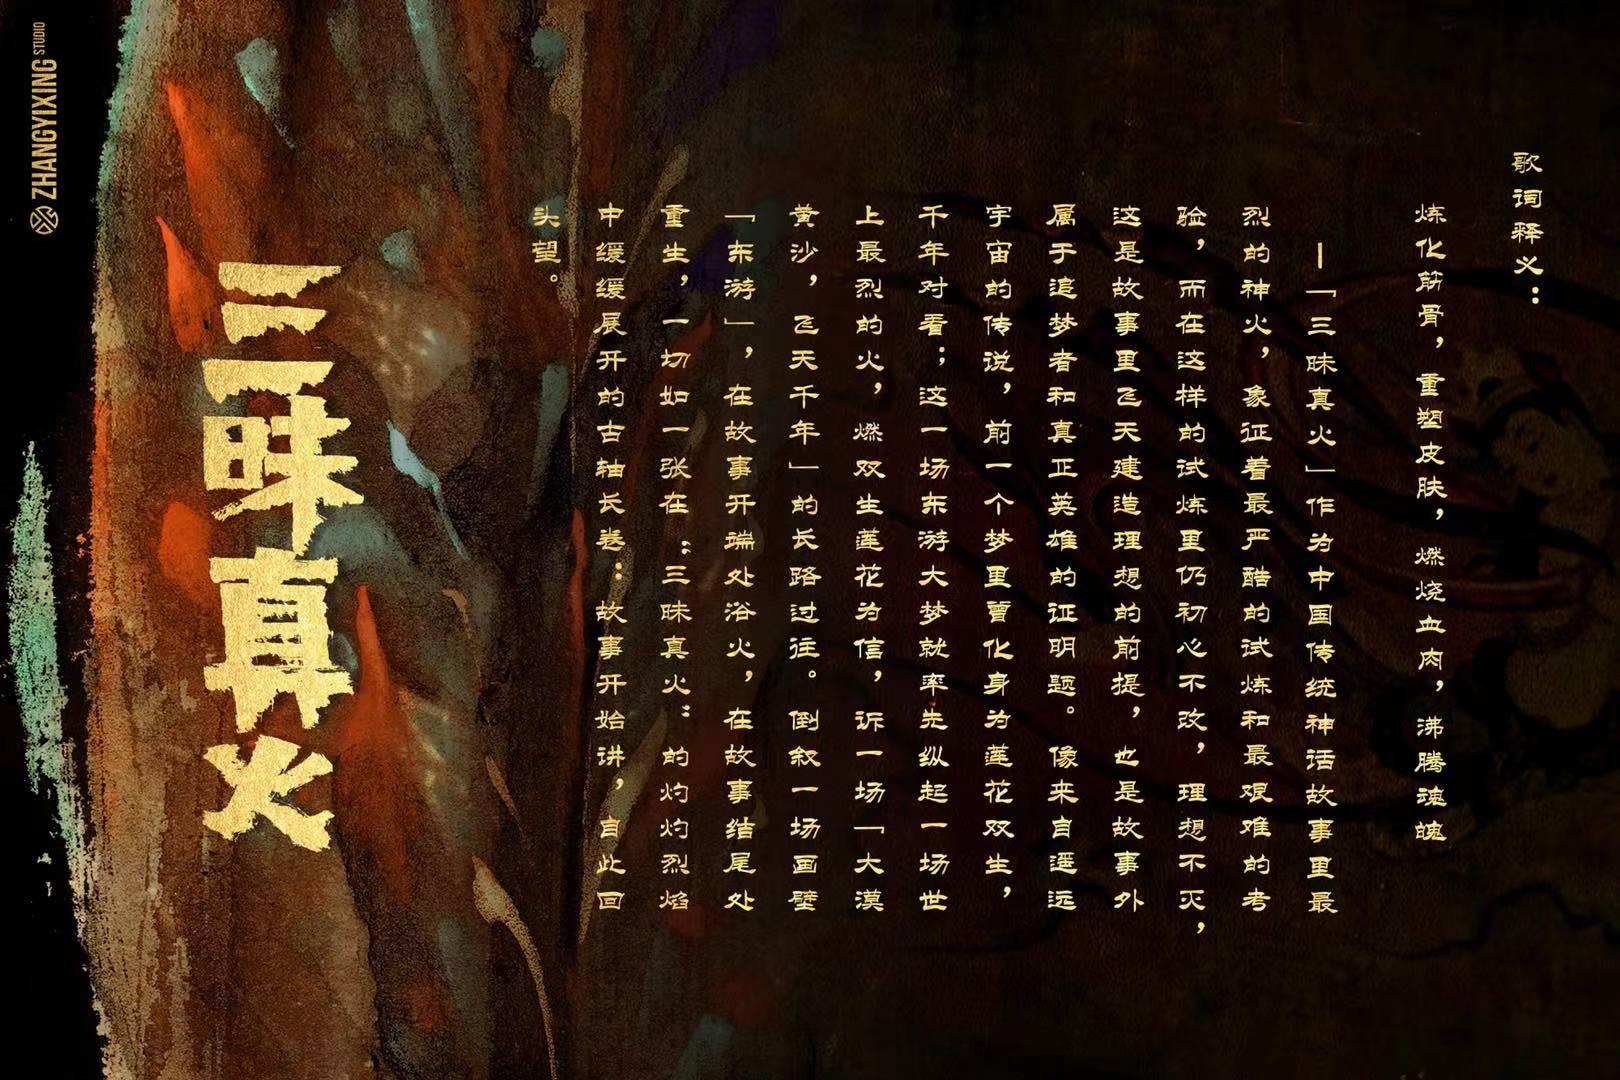 歌词释义：
炼化筋骨，重塑皮肤，燃烧血肉，沸腾魂魄
—「三昧真火」作为中国传统神话故事里最
烈的神火，象征着最严酷的试炼和最艰难的考
验，而在这样的试炼里仍初心不改，理想不灭，
这是故事里飞天建造理想的前提，也是故事外
属于追梦者和真正英雄的证明题。像来自遥远
宇宙的传说，前一个梦里曾化身为莲花双生，
千年对看；这一场东游大梦就率先纵起一场世
上最烈的火，燃双生莲花为信，诉一场「大漠
黄沙，飞天千年」的长路过往。倒叙一场画壁
「东游」，在故事开端处浴火，在故事结尾处
重生，一切如一张在：三昧真火：的灼灼烈焰
中缓缓展开的古轴长卷：故事开始讲，自此回
头望。
三昧真火
ZHANGYIXING STUDIO